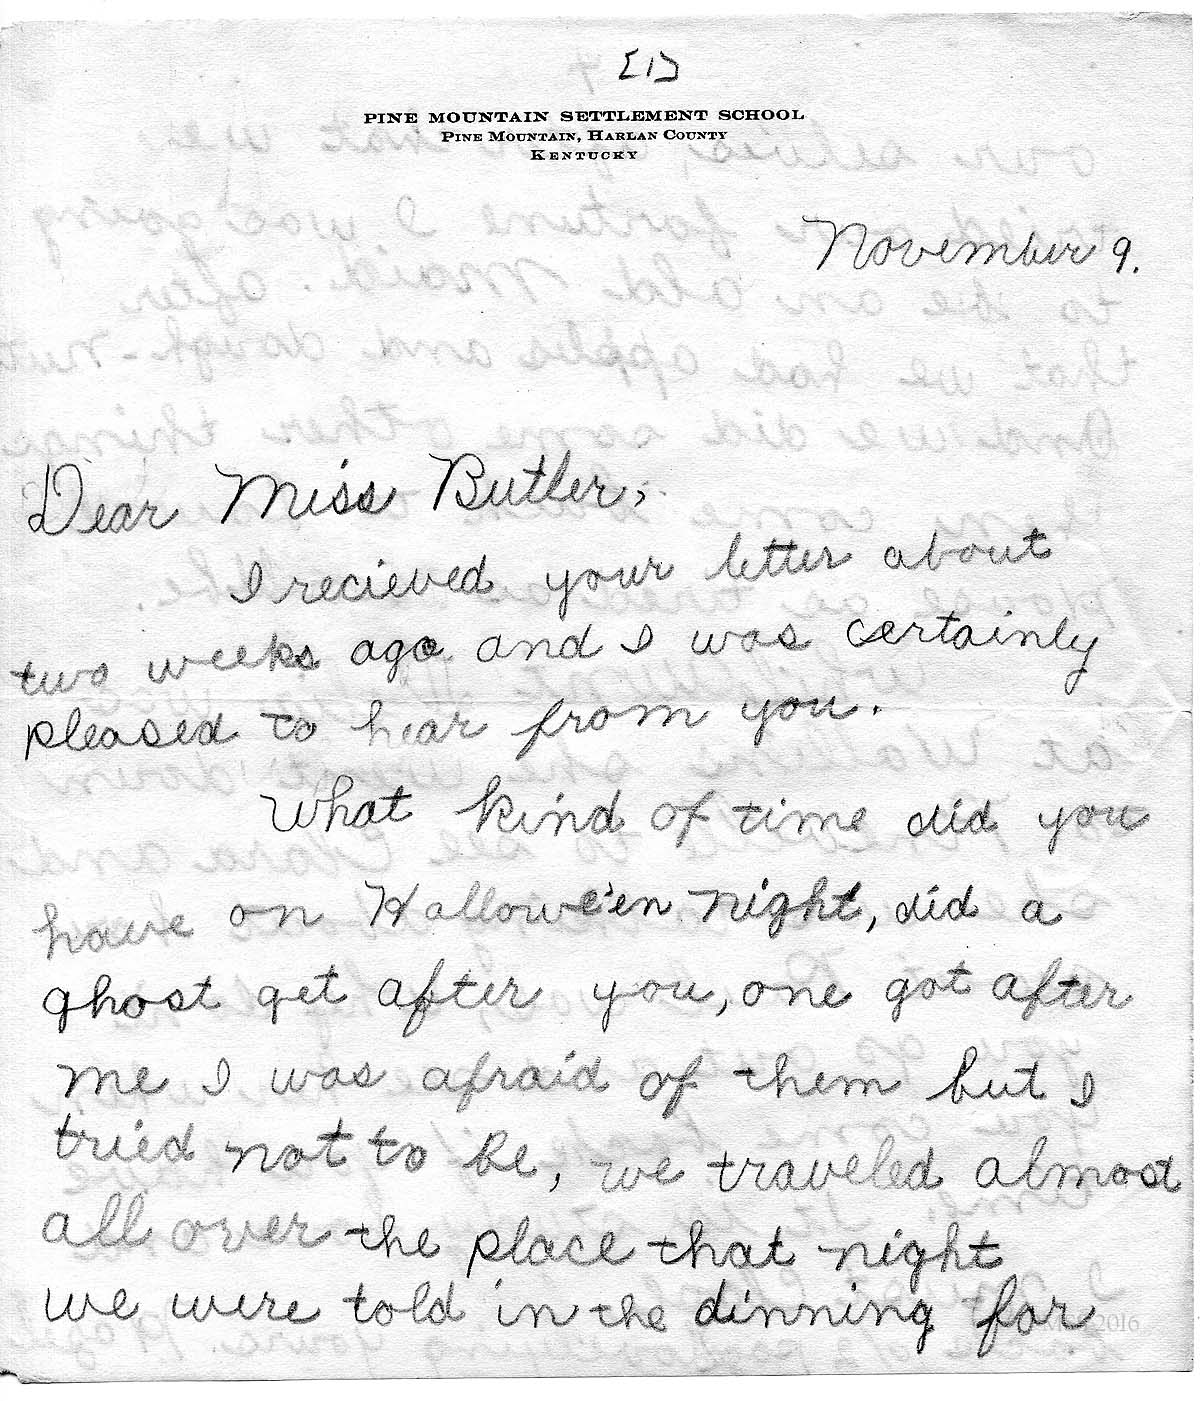 [1]
PINE MOUNTAIN SETTLEMENT SCHOOL
PINE MOUNTAIN, HARLAN COUNTY
KENTUCKY
November 9.
Dear Miss Butler,
I recieved your letter about
two weeks ago and I was certainly
pleased to hear from you.
What kind of time did you
have on Hallowe'en night, did a
ghost get after you, one got after
me I was afraid of them but I
tried not to be, we traveled almost
all over the place that night
we were told in the dinning for
2016